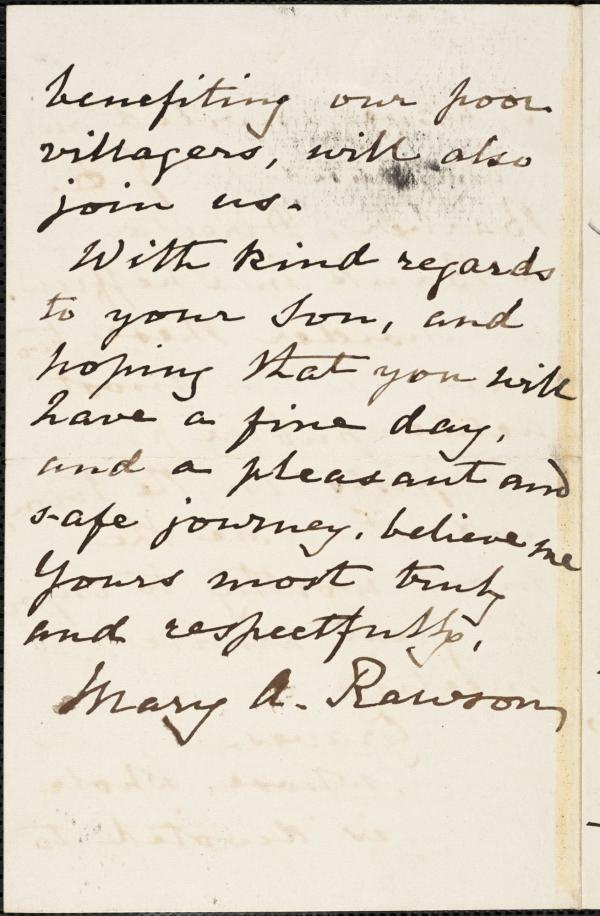 benefiting our poor
villagers, will also
join us.
With kind regards
to your son, and
hoping that you will
have a fine day,
and a pleasant and
safe journey, believe me
Yours most truly
and respectfully,
Mary A. Rawson